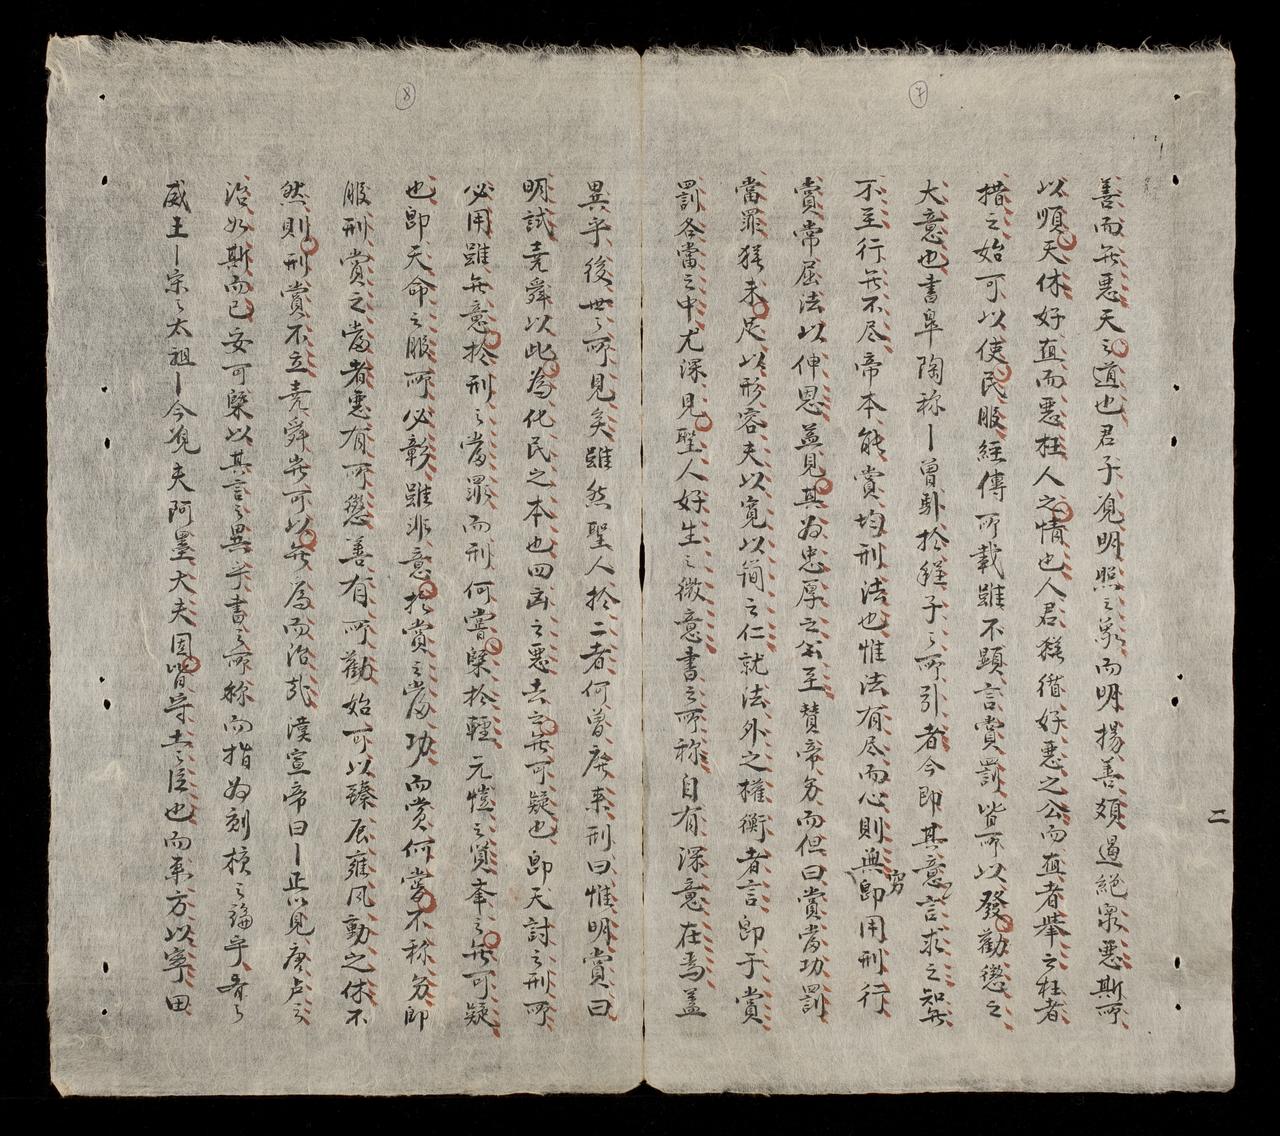 7
善而無惡天之道也君子覌明照之象而明揚善頬遏絶衆惡斯所
以順天休好直而惡枉人之情也人君推循好惡之公而直者舉之枉者
措之始可以使民服經傳所載雖不顕言賞罰皆所以發勸懲之
大意也書皐陶称丨曽引於程子之所引者今即其意言求之知無
不至行無不尽帝本能賞均刑法也惟法有尽而心則無窮即用刑行
賞常屈法以伸恩益見其為忠厚之至賛帝夯而但曰賞當功罰
當罪猶未足以形容夫以寛以簡之仁就法外之權衡者言即于賞
罰各當之中尤深見聖人好生之微意書之所称自有深意在焉盖
二
8
異乎後世之所見矣雖然聖人於二者何曽廃耒刑曰惟明賞曰
明試尭舜以此為化民之本也四凶之惡去之無可疑也即天討之刑所
必用雖無意於刑之當罪而刑何嘗槩於輕元愷之賢舉之無可疑
也即天命之服所必彰雖非意於賞之當功而賞何當不称夯即
服刑賞之當者惡有所懲善有所勸始可以臻辰雍風動之休不
然則刑賞不立尭舜無可以無為而治乱漢宣帝曰丨正以見唐虞之
治如斯而已安可槩以其言之異乎書之所称而指為刻核之論乎者之
威王丨宗之太祖丨今覌夫阿墨大夫固皆守土之臣也而東方以寧田